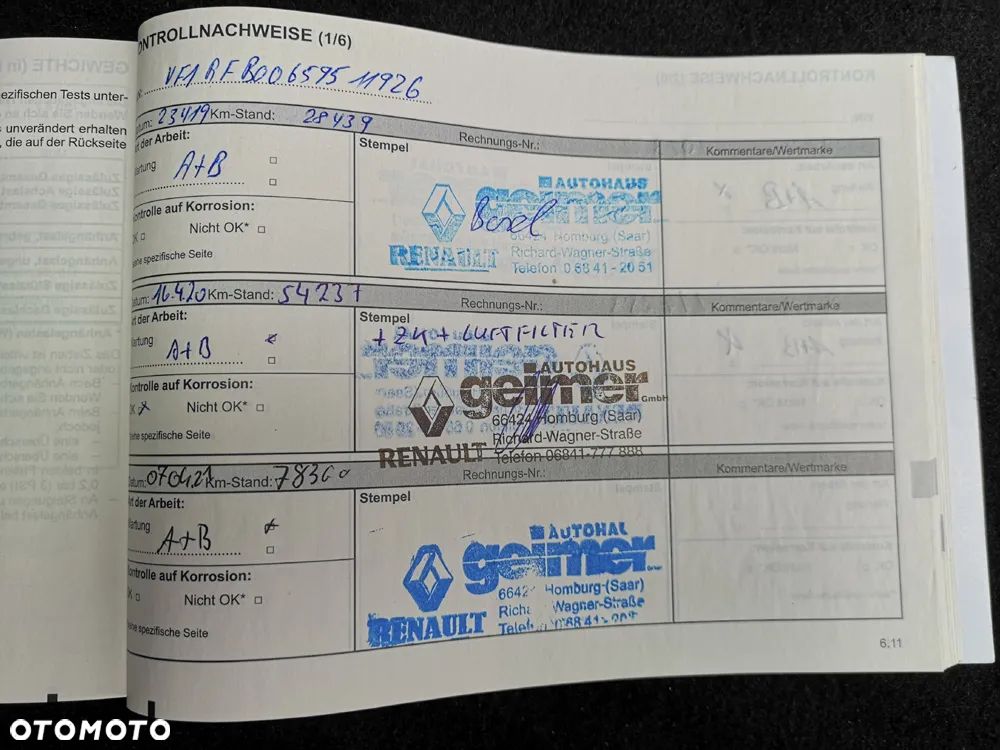 GEWICHTE (in
ezifischen Tests unter-
s unverändert erhalten
, die auf der Rückseite
ONTROLLNACHWEISE (1/6)
VF1RFB00659511926
tum: 23.4.19 Km-Stand: 28439 Rechnungs-Nr.: Kommentare/Wertmarke
t der Arbeit:
artung A+B
ontrolle auf Korrosion:
OK Nicht OK*
ine spezifische Seite
Stempel
AUTOHAUS
geimer
RENAULT
66424 Homburg (Saar)
Richard-Wagner-Straße
Telefon 0 68 41 - 20 51
tum: 16.4.20 Km-Stand: 54237 Rechnungs-Nr.: Kommentare/Wertmarke
t der Arbeit:
artung A+B
ontrolle auf Korrosion:
OK x Nicht OK*
ine spezifische Seite
Stempel
+ ZK + LUFTFILTER
AUTOHAUS
geimer GmbH
RENAULT
66424 Homburg (Saar)
Richard-Wagner-Straße
Telefon 06841-777 888
tum: 07.04.21 Km-Stand: 78360 Rechnungs-Nr.: Kommentare/Wertmarke
t der Arbeit:
artung A+B
ontrolle auf Korrosion:
K Nicht OK*
ine spezifische Seite
Stempel
AUTOHAU
geimer
RENAULT
6642 Homburg (Saar)
Richa Wagner-Straße
6.11
OTOMOTO